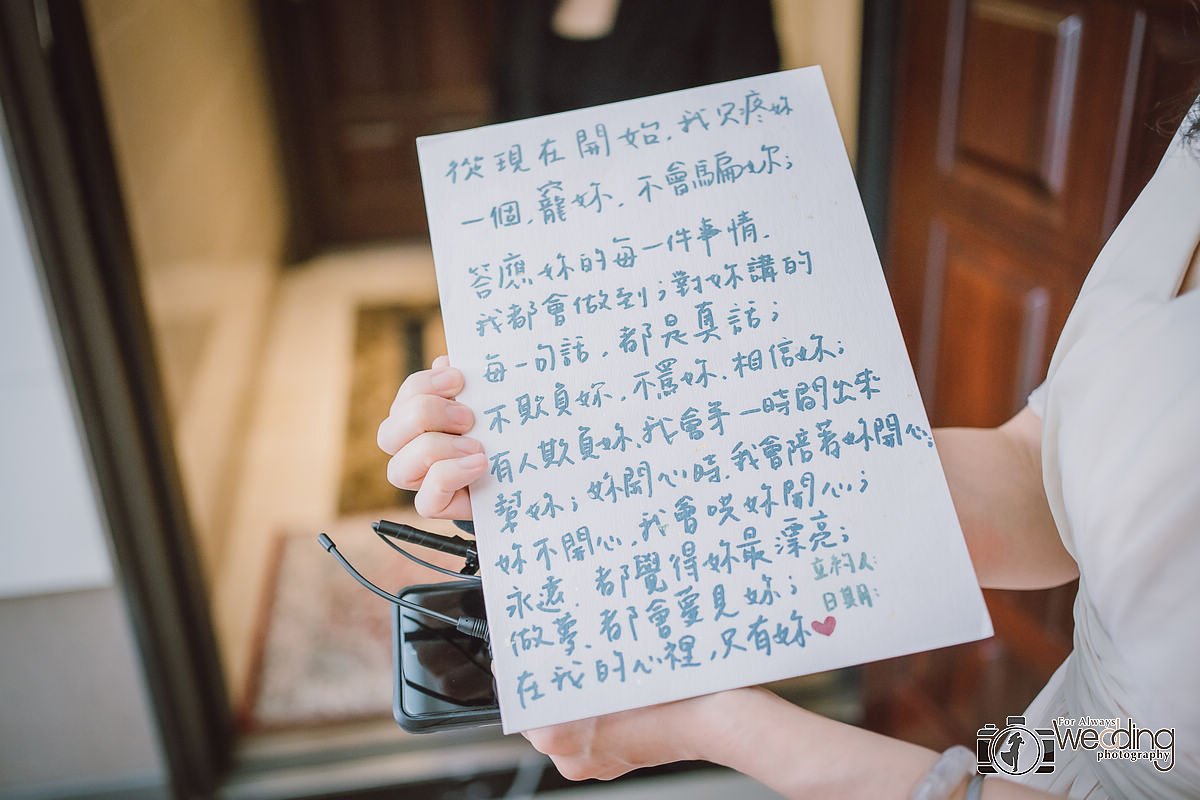 從現在開始,我只疼妳
一個,寵妳,不會騙妳;
答應妳的每一件事情,
我都會做到;對妳講的
每一句話,都是真話;
不欺負妳,不罵妳,相信妳;
有人欺負妳,我會第一時間出來
幫妳;妳開心時,我會陪著妳開心;
妳不開心,我會哄妳開心;
永遠,都覺得妳最漂亮;
做夢,都會夢見妳;
在我的心裡,只有妳♥
立約人:
日期:
For Always
Wedding
photography